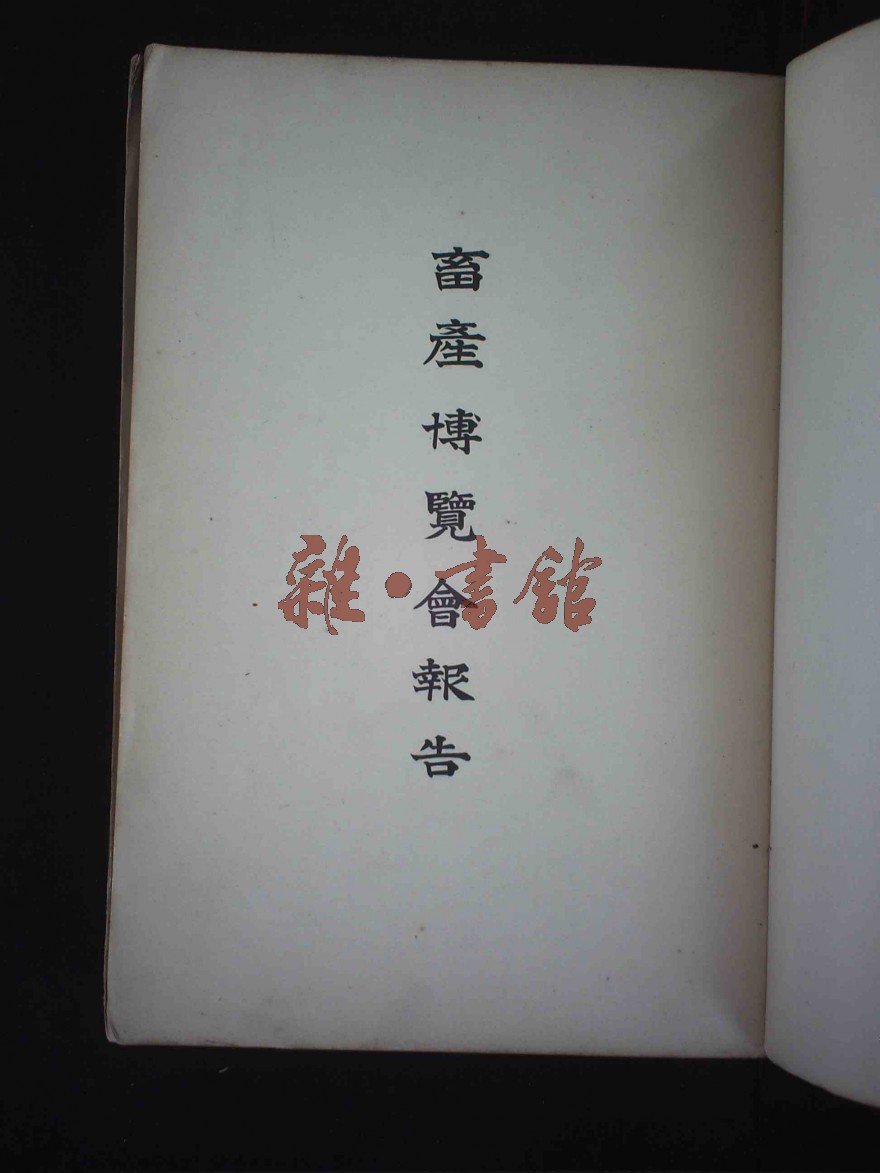 畜產博覽會報告
雜·書館